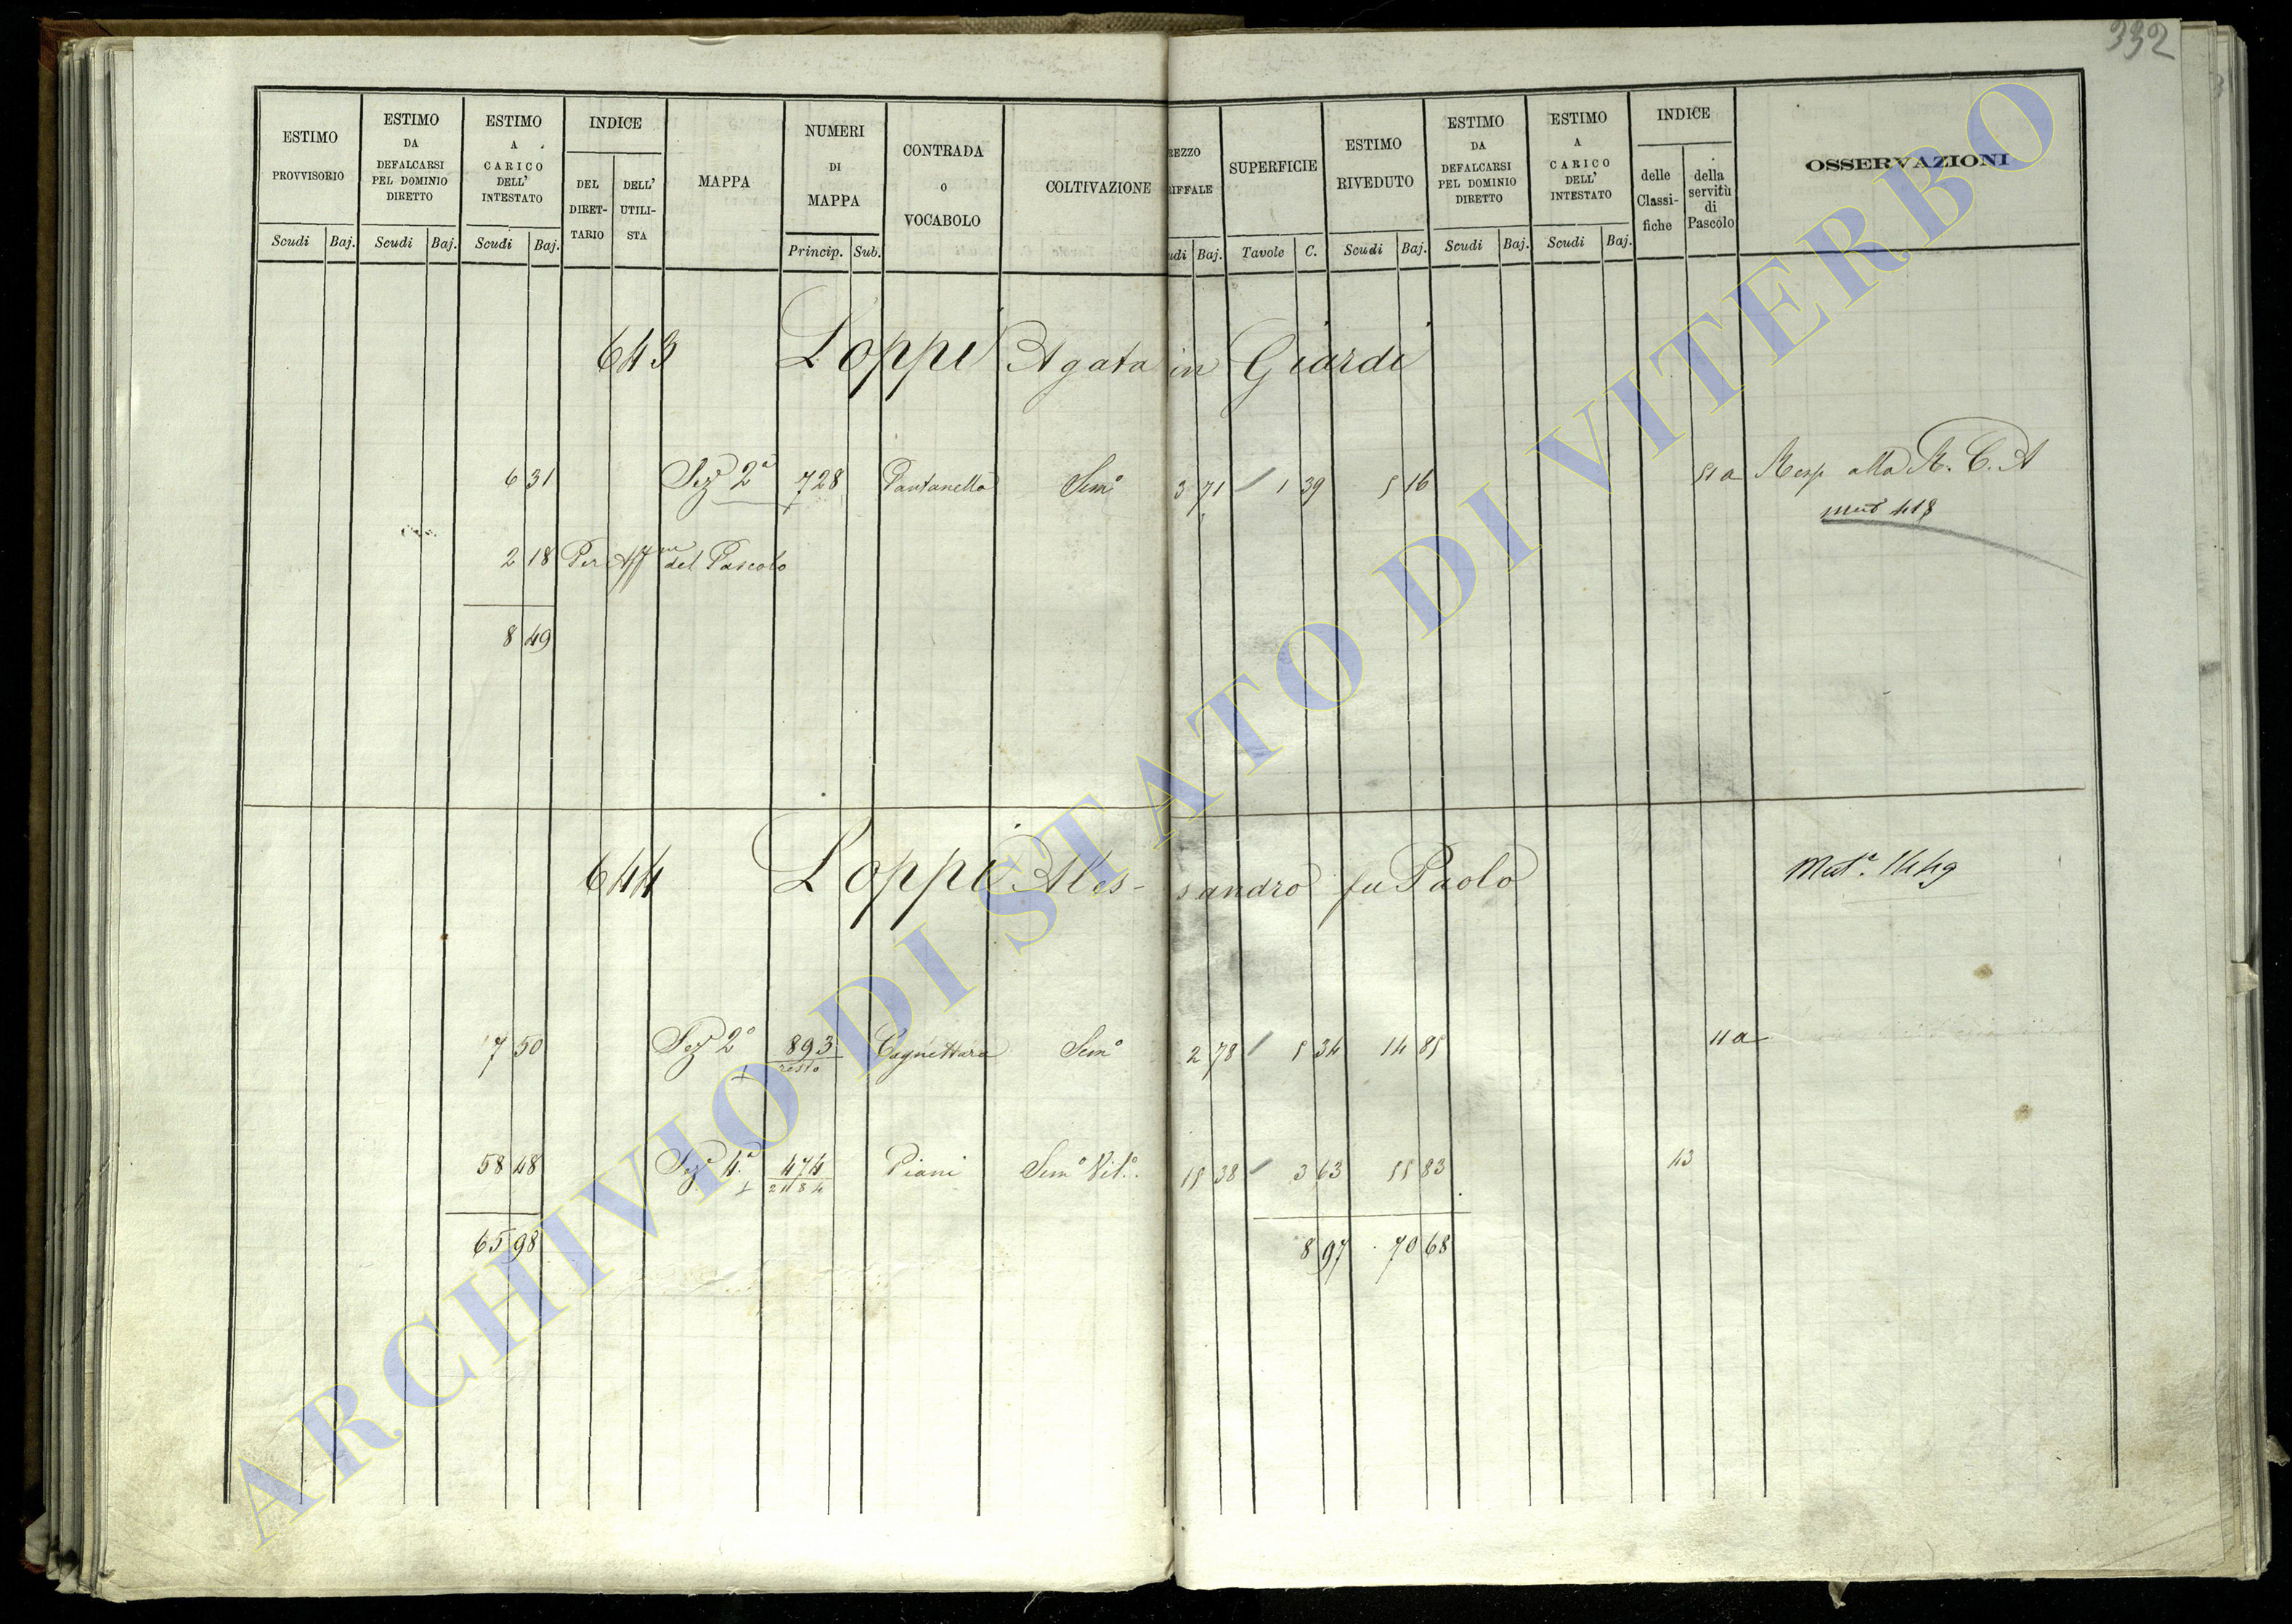 332
ESTIMO PROVVISORIO
Scudi Baj.
ESTIMO DA DEFALCARSI PEL DOMINIO DIRETTO
Scudi Baj.
ESTIMO A CARICO DELL' INTESTATO
Scudi Baj.
INDICE
DEL DIRET-TARIO
DELL' UTILI-STA
MAPPA
NUMERI DI MAPPA
Princip. Sub.
CONTRADA O VOCABOLO
COLTIVAZIONE
REZZO RIFFALE
udi Baj.
SUPERFICIE
Tavole C.
ESTIMO RIVEDUTO
Scudi Baj.
ESTIMO DA DEFALCARSI PEL DOMINIO DIRETTO
Scudi Baj.
ESTIMO A CARICO DELL' INTESTATO
Scudi Baj.
INDICE
delle Classi-fiche
della servitù di Pascolo
OSSERVAZIONI
643 Loppi Agata in Giardi
6 31 Sez 2a 728 Pantanella Semo 3 71 1 39 5 16 51 a Resp alla R. C. A
mut 418
2 18 Per Affm del Pascolo
8 49
644 Loppi Ales-sandro fu Paolo Muta. 1449
7 50 Sez 2a 893 Cagnettara Semo 2 78 5 34 14 85 11 a
1 resto
58 48 Seza 4.a 474 Piani Semo Vito. 15 38 3 63 55 83 43
2184
65 98 8 97 70 68
ARCHIVIO DI STATO DI VITERBO